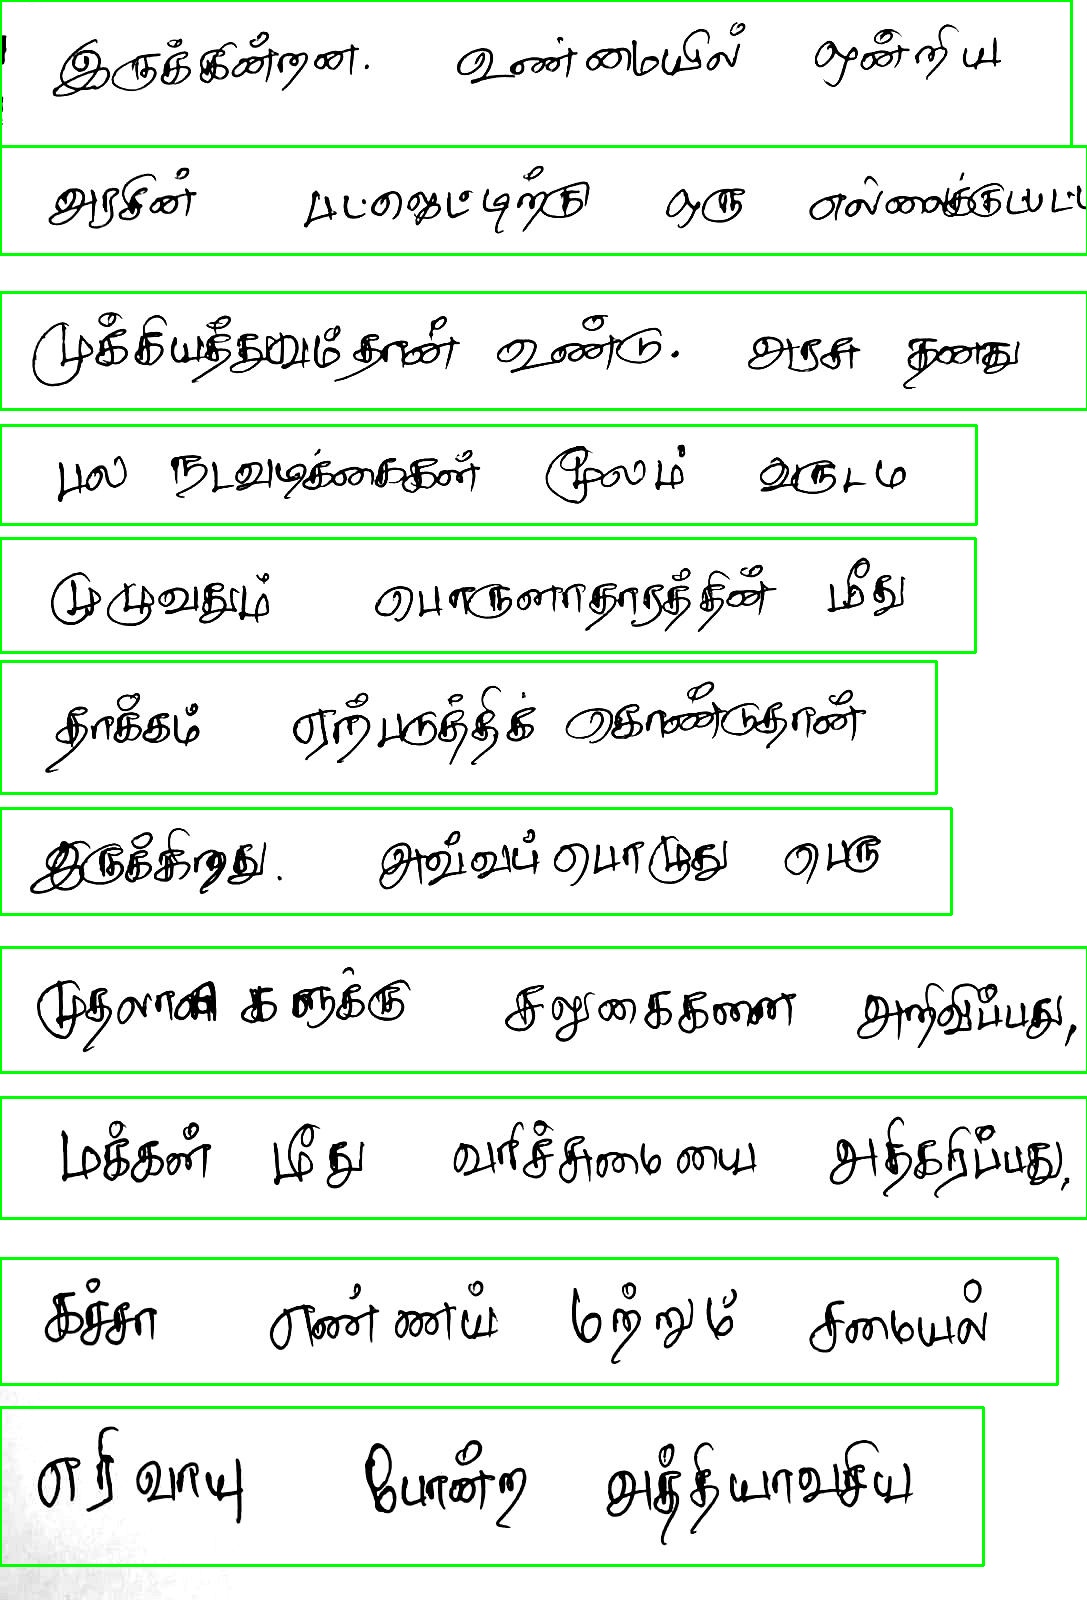 இருக்கின்றன. உண்மையில் ஒன்றிய
அரசின் பட்ஜெட்டிற்கு ஒரு எல்லைக்குட்பட்ட
முக்கியத்துவம்தான் உண்டு. அரசு தனது
பல நடவடிக்கைகள் மூலம் வருடம்
முழுவதும் பொருளாதாரத்தின் மீது
தாக்கம் ஏற்படுத்திக் கொண்டுதான்
இருக்கிறது. அவ்வப்பொழுது பெரு
முதலாளிகளுக்கு சலுகைகளை அறிவிப்பது,
மக்கள் மீது வரிச்சுமையை அதிகரிப்பது,
கச்சா எண்ணய் மற்றும் சமையல்
எரிவாயு போன்ற அத்தியாவசிய